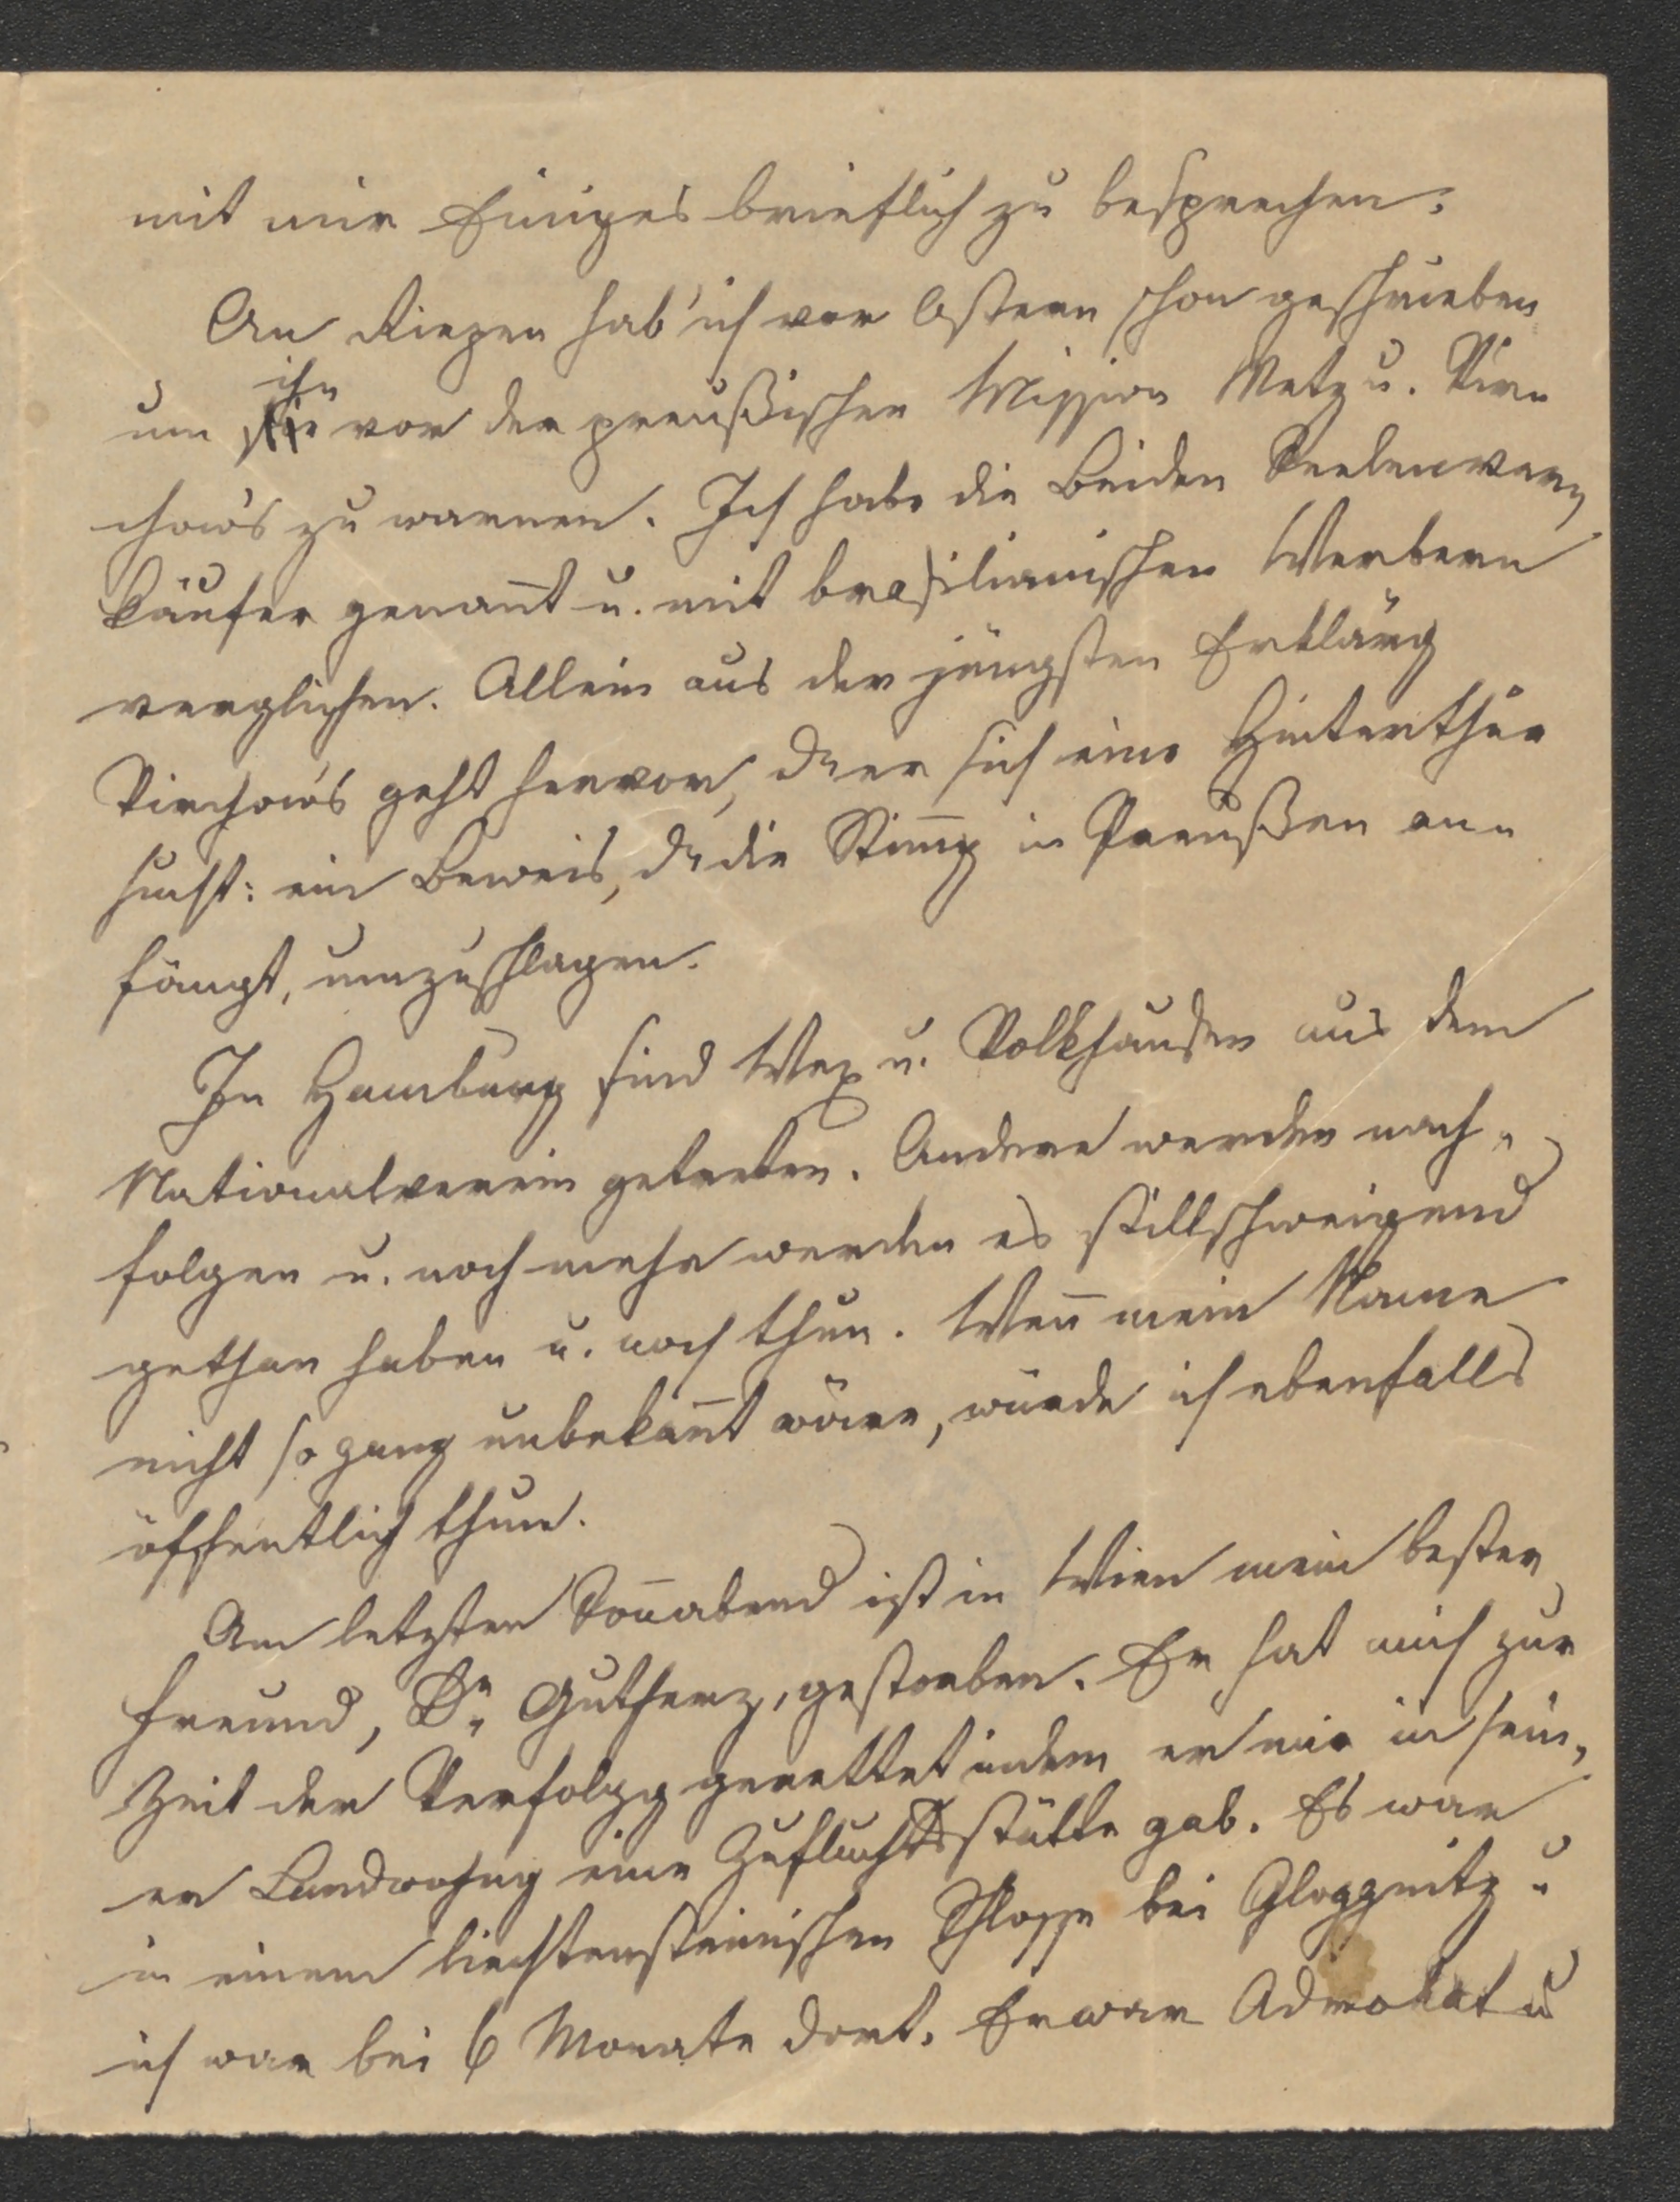 mit mir Einiges brieflich zu besprechen.
An Riegen hab' ich vor Ostern schon geschrieben
um ihn vor der preußischen Mission Metz u. Vir=
chow's zu warnen. Ich habe die Beiden Seelenver=
käufer genan̄t u. mit brasilianischen Werbern
verglichen. Allein aus der jüngsten Erklärg
Virchow's geht hervor, dß er sich eine Hinterthür
sucht: ein Beweis, dß die Stim̄g in Preußen an=
fängt, umzuschlagen.
In Hamburg sind Wex u. Volkhausen aus dem
Nationalverein getreten. Andere werden nach=
folgen u. noch mehr werden es stillschweigend
gethan haben u. noch thun. Wen̄ mein Name
nicht so ganz unbekan̄t wäre, würde ich ebenfalls
öffentlich thun.
Am letzten Son̄abend ist in Wien mein bester
Freund, Dr. Gutherz, gestorben. Er hat mich zur
Zeit der Verfolgg gerettet indem er mir in sein=
er Landwohng eine Zufluchtsstätte gab. Es war
in einem liechtensteinischen Schlosse bei Gloggnitz u
ich war bei 6 Monate dort. Er war Advokat u